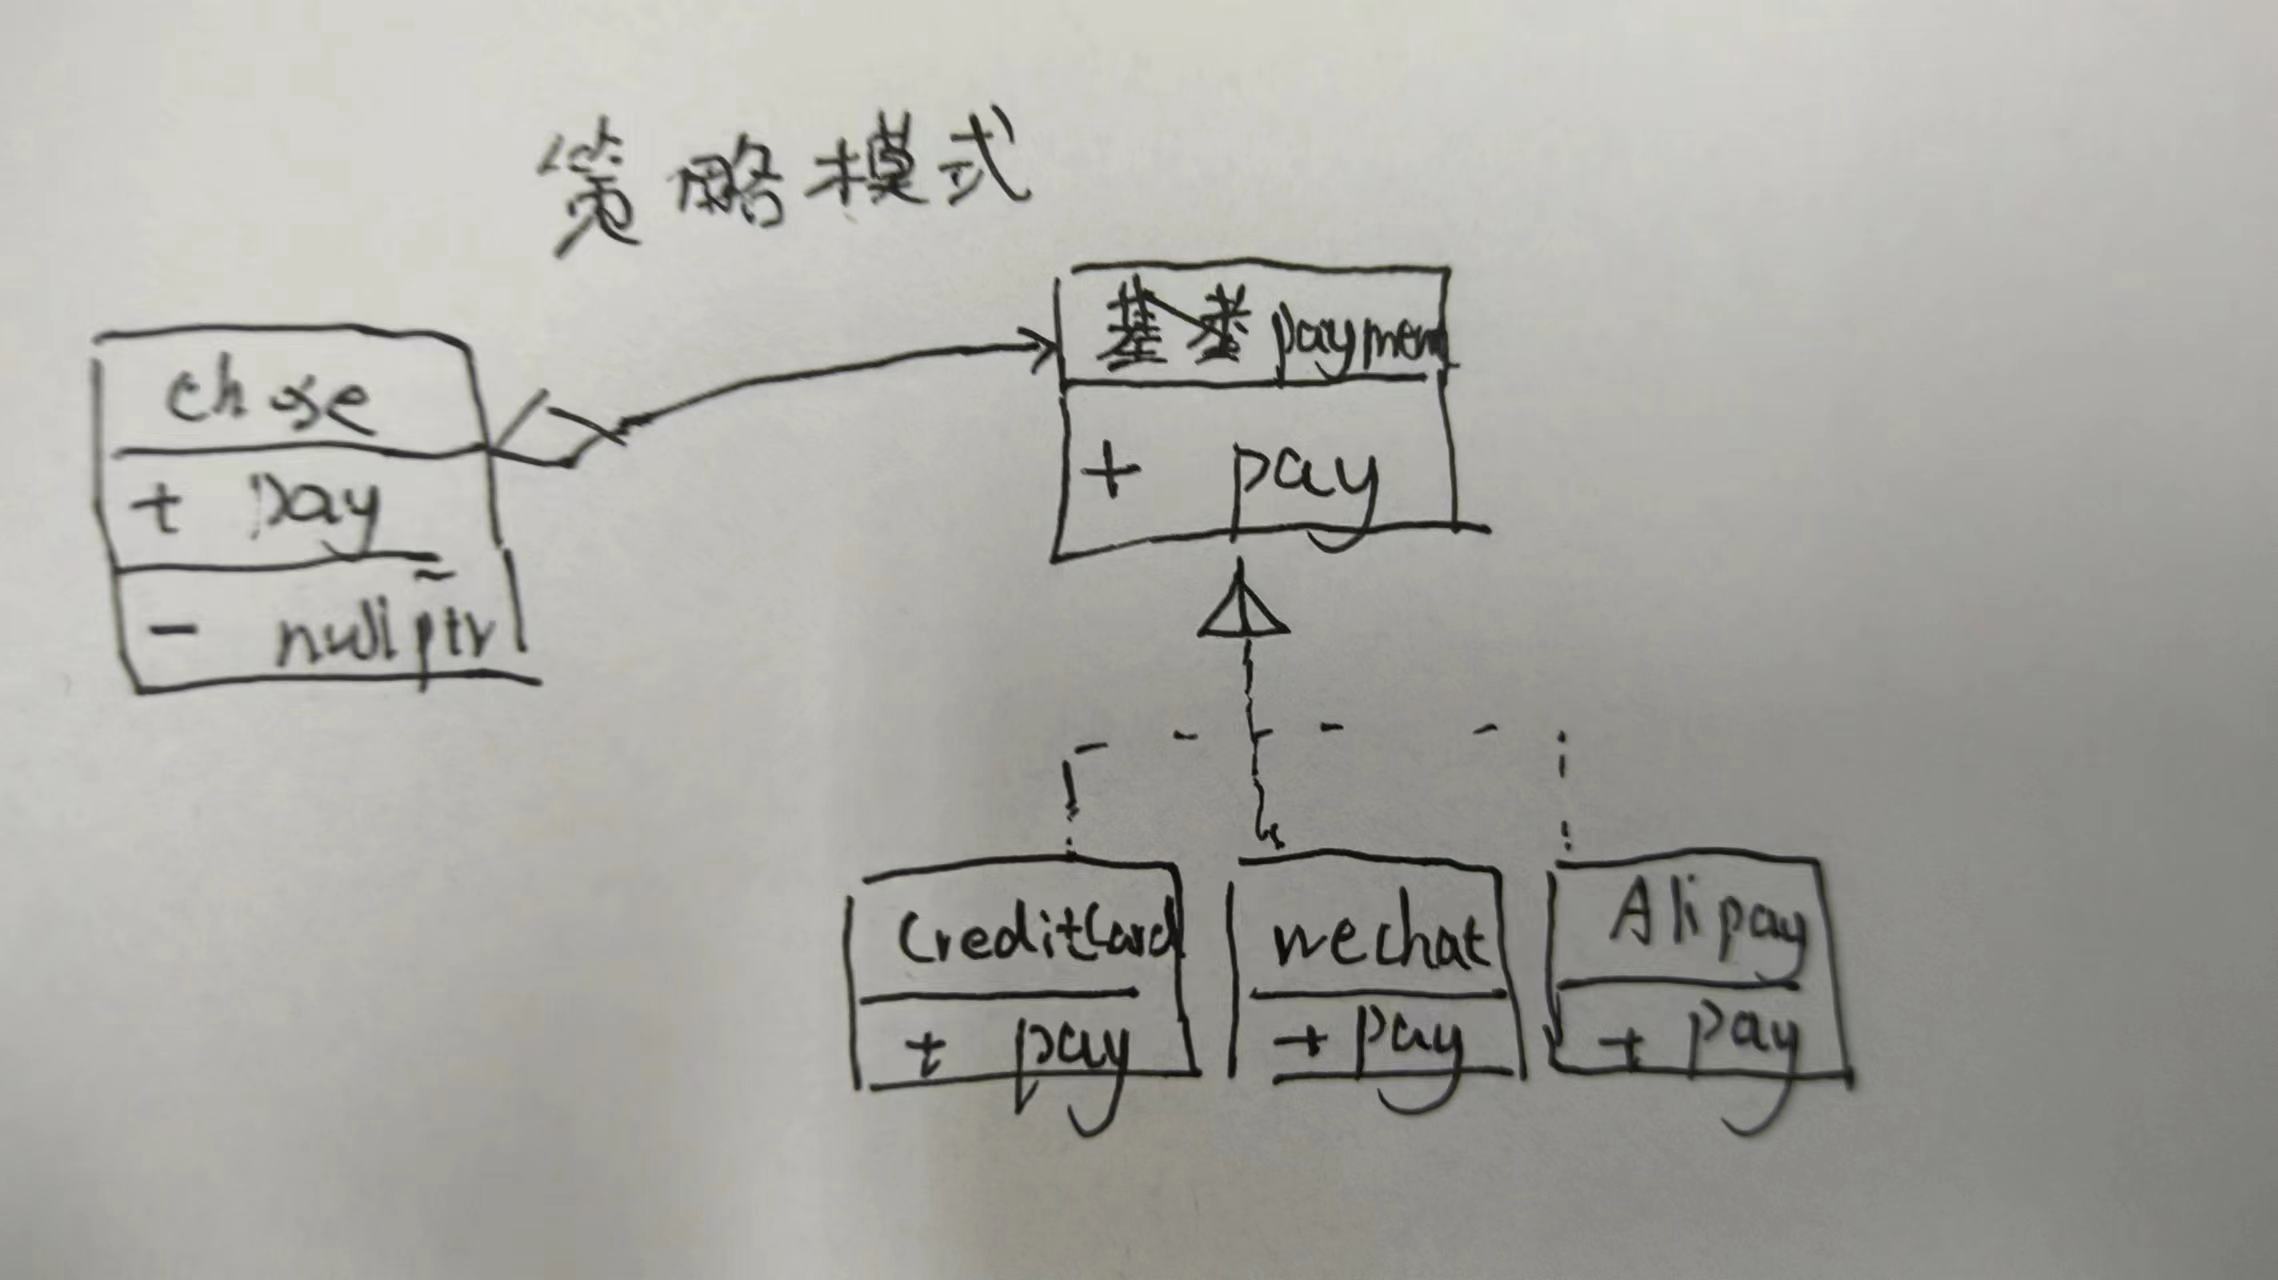 策略模式
chose
+ pay
- nullptr
基类 payment
+ pay
CreditCard
+ pay
wechat
+ pay
Alipay
+ pay